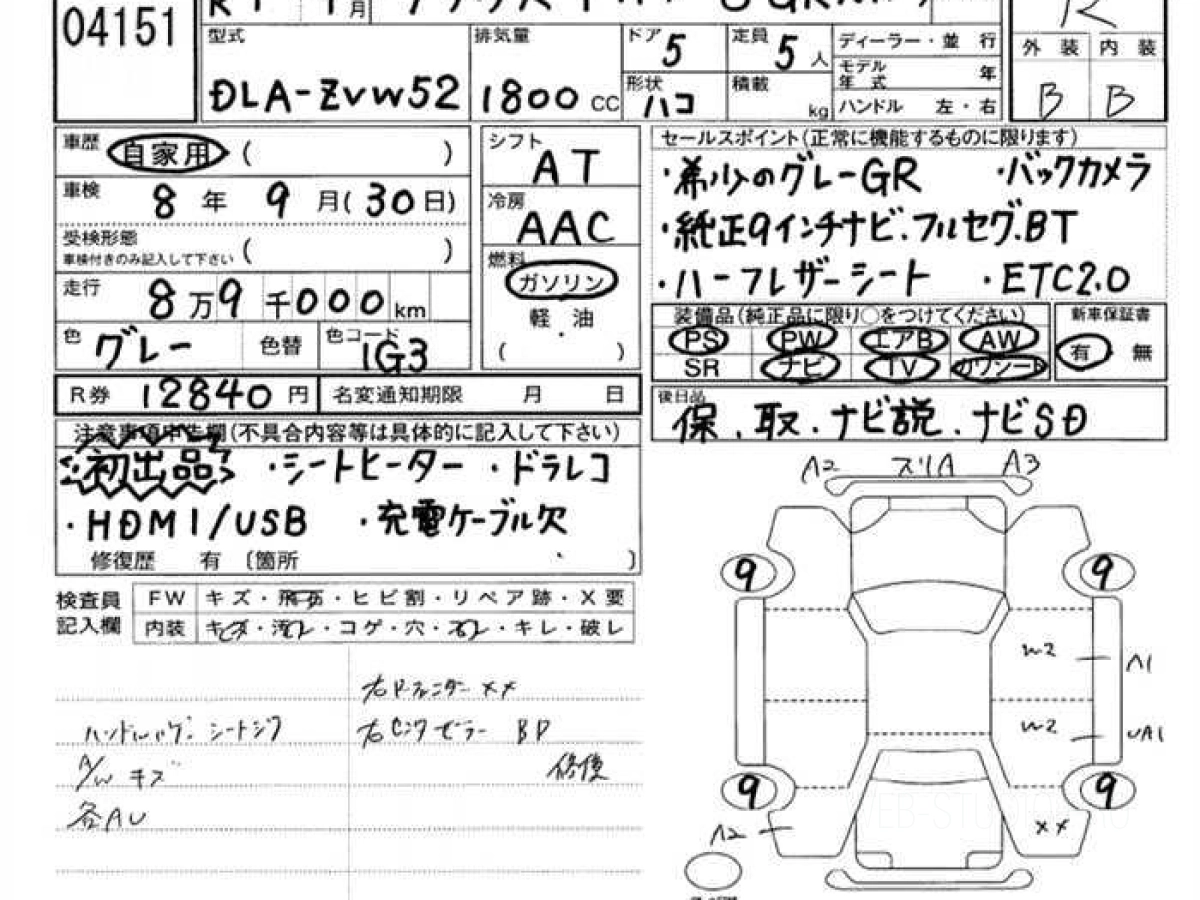 04151
型式 DLA-ZVW52
排気量 1800 CC
ドア 5
定員 5 人
形状 ハコ
積載 kg
ディーラー・並 行
モデル年式 年
ハンドル 左・右
外 装 内 装
B B
車歴 自家用 ( )
シフト AT
セールスポイント(正常に機能するものに限ります)
・希少のグレーGR ・バックカメラ
・純正9インチナビ.フルセグ.BT
・ハーフレザーシート ・ETC2.0
車検 8 年 9 月(30日)
冷房 AAC
受検形態 ( )
車検付きのみ記入して下さい
燃料 ガソリン
軽・油
( )
走行 8万9千000km
色 グレー 色替 色コード 1G3
装備品(純正品に限り○をつけてください) 新車保証書
PS PW エアB AW 有 無
SR ナビ TV カワシート
R券 12840 円 名変通知期限 月 日
後日品 保.取.ナビ説.ナビSD
注意事項申告欄(不具合内容等は具体的に記入して下さい)
初出品 ・シートヒーター ・ドラレコ
・HDMI/USB ・充電ケーブル欠
修復歴 有 〔箇所 )
検査員記入欄
FW キズ・飛石・ヒビ割・リペア跡・X要
内装 キズ・汚レ・コゲ・穴・スレ・キレ・破レ
ハンドル
A/W キズ
各AU
右Fフェンダー XX
BP
修復
A2 スリA A3
9 9
W2 A1
W2 UA1
9 9
A2 XX